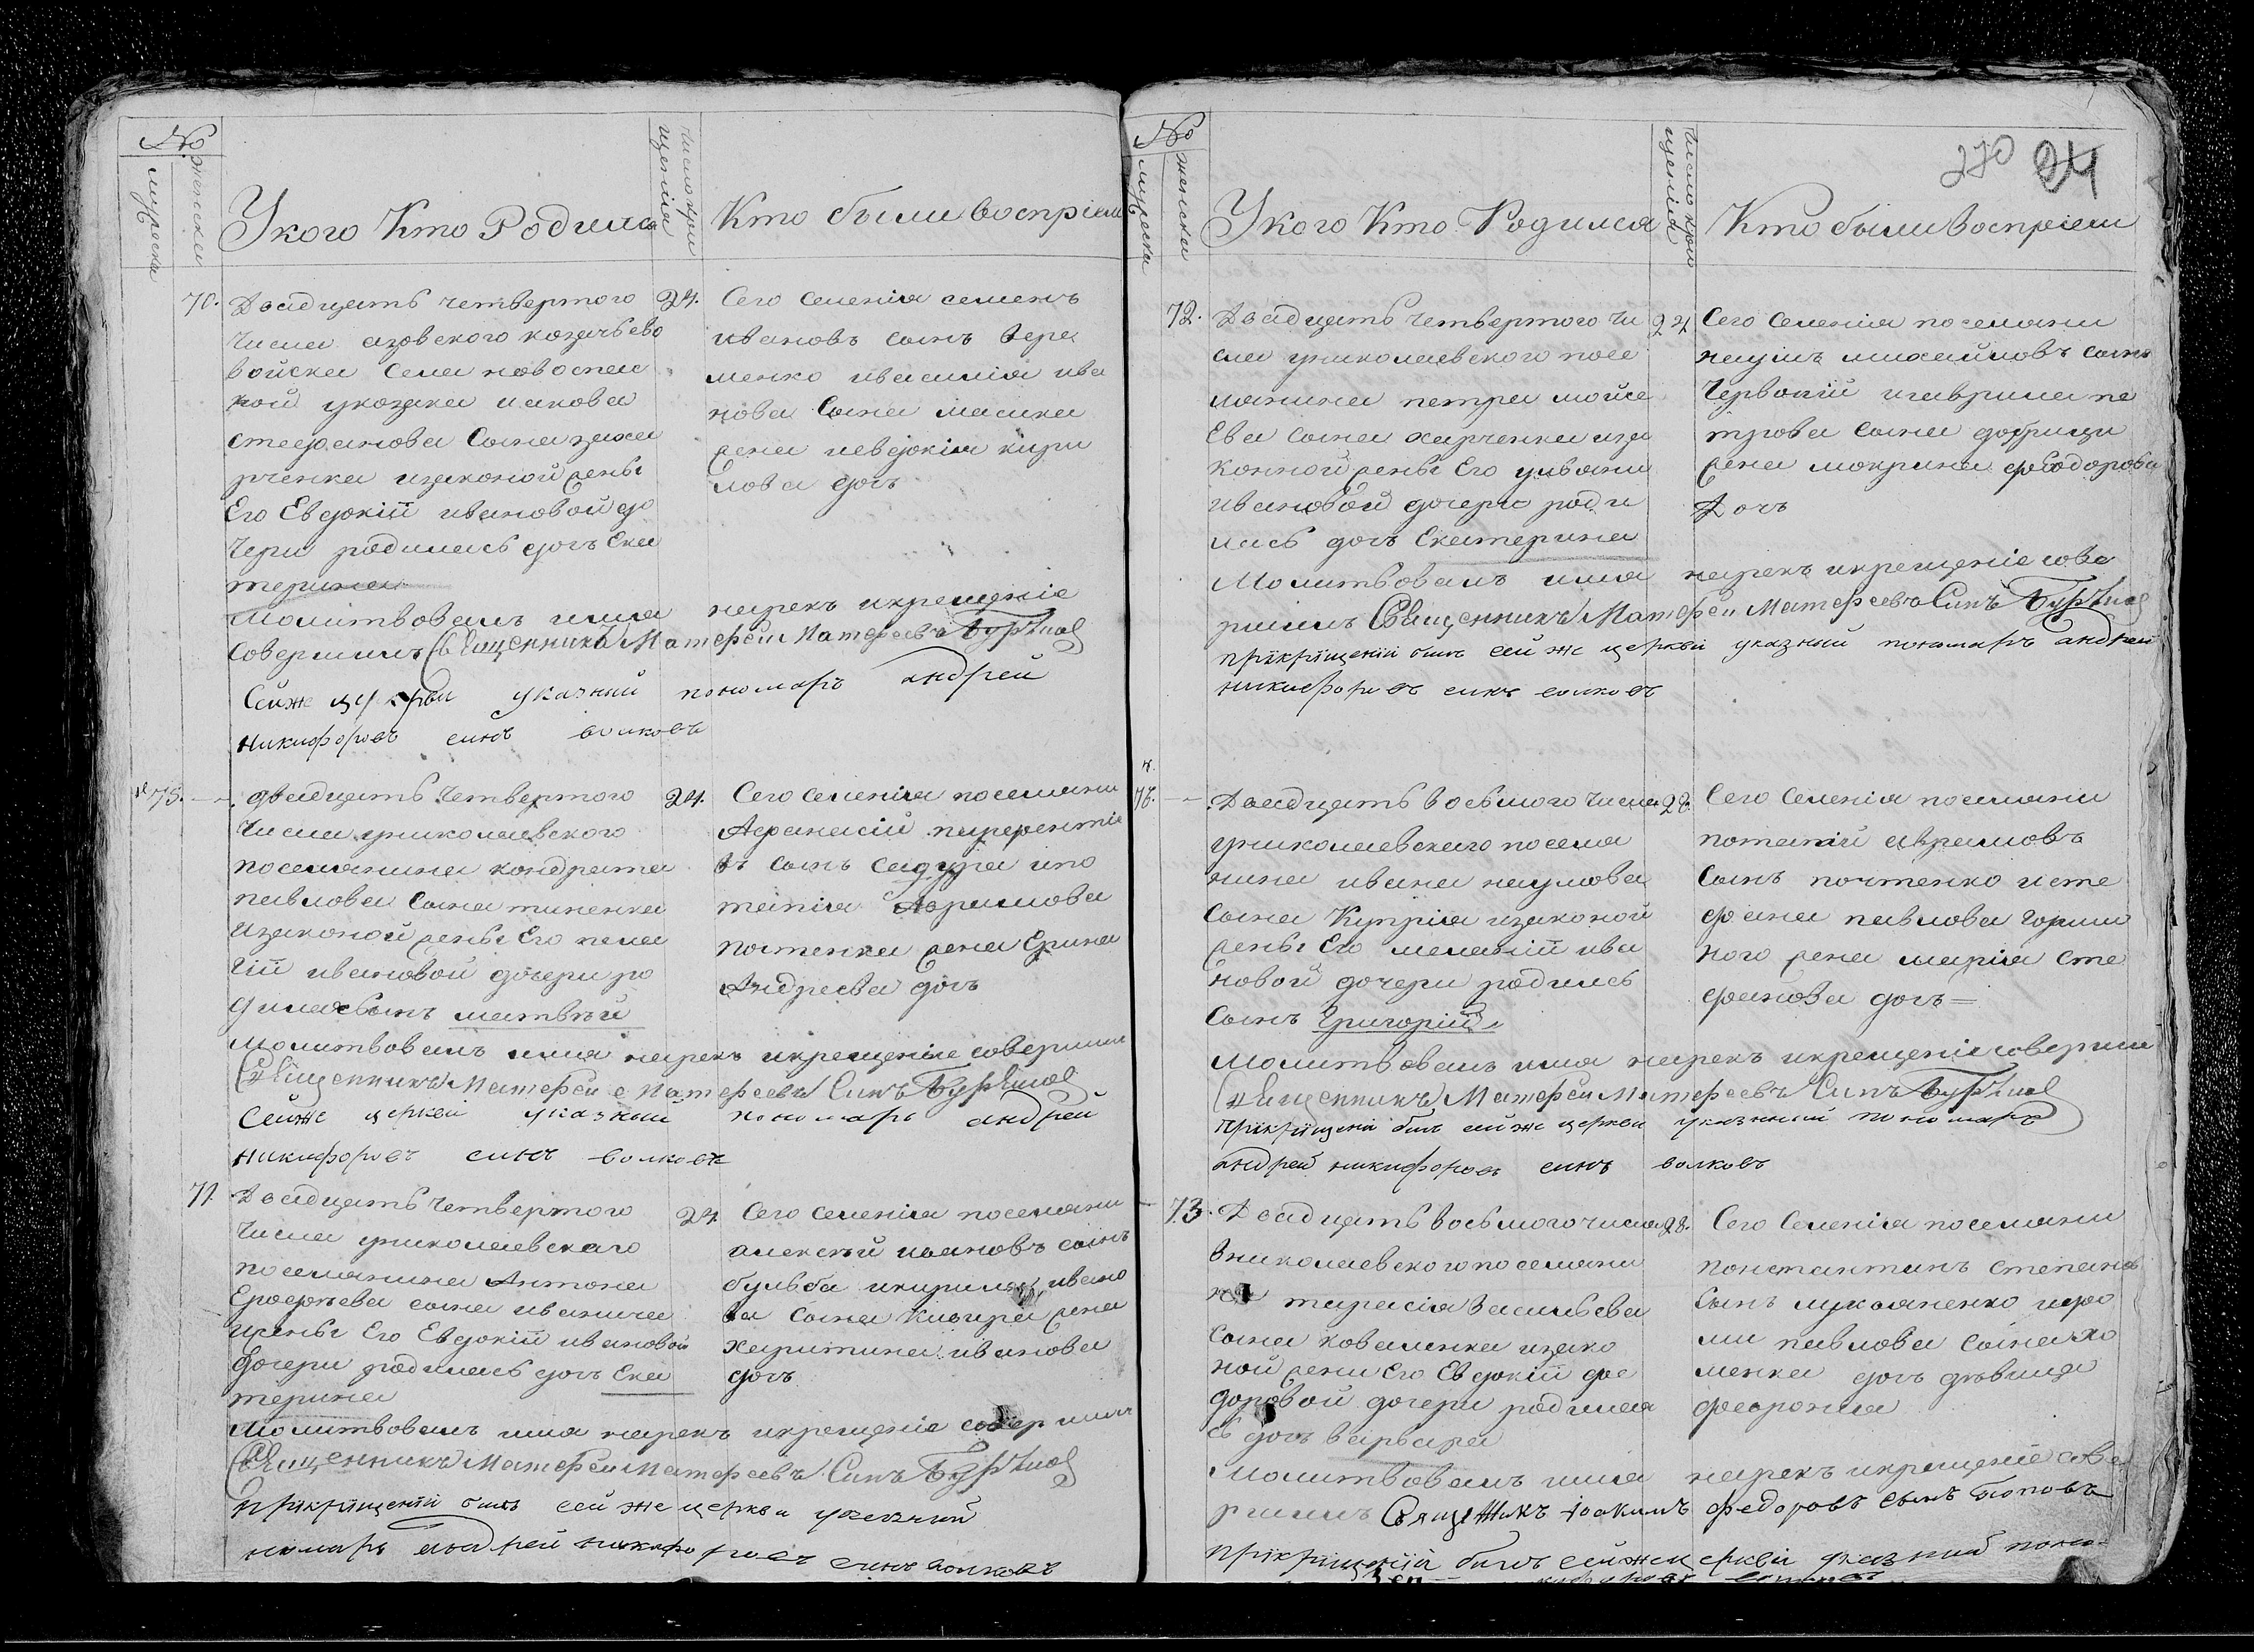 №
мужеска
женска
У кого Кто Родилса
Число крещенія
Кто были восприем
70.
Двадцять четвертого
числа азовского козачьево
войска села новоспас
кой укозака иакова
стефанова сына заха
рченка изаконой жены
Его Евдокіи ивановой до
чери родилась дочъ Ека
терина
24.
Сего селенія семенъ
ивановъ сынъ вере
менко ивасилія ива
нова сына масика
жена иевдокія кири
лова дочь
Молитвовалъ имя нарекъ икрещеніе
совершилъ Священникъ Матфеи Матфеевъ
Сейже церкви указний пономаръ андрей
никифоровъ синъ волковъ
75.
двадцять четвертого
числа униколаевского
поселянина кондрата
павлова сына тиненка
изаконой жены Его пела
гіи ивановой дочери ро
дился сынъ матвѣй
24.
Сего селенія поселяни
Афанасій
въ сынъ садура ипо
тапія Аврамова
почтенка жена Ерина
Андреева дочъ
молитвовалъ имя нарекъ икрещеніе совершил
Священникъ Матфеи Матфеевъ Синъ
Сейже церкви указний пономаръ андрей
никифоровъ синъ волковъ
71.
Двадцять четвертого
числа униколаевскаго
поселянина Антона
Ерофѣева сына иванича
ижены Его Евдокіи ивановой
дочери родилась дочъ Ека
терина
24.
Сего селенія поселяни
алексѣй ивановъ сынъ
бульба икирила ивано
ва сына жена
харитина иванова
дочъ
Молитвовалъ имя нарекъ икрещеніе совершил
Священникъ Матфеи Матфеевъ Синъ
прикрищеніи билъ сейже церкви указний
номаръ андрей никифоровъ синъ волковъ
270 24
№
мужеска
женска
У кого Кто Родился
Число крещенія
Кто были восприем
72.
Двадцять четвертого чи
сла униколаевского посе
лянина петра мойсе
Ева сына харченка иза
конной жены Его ульяни
ивановой дочери роди
лась дочъ Екатерина
24
Сего селенія поселяни
наумъ михайловъ сынъ
Червоній игаврила пе
трова сына
жена мокрина феодорова
Дочъ
Молитвовалъ имя нарекъ икрещеніе сове
ршилъ Священникъ Матфеи Матфеевъ Синъ
прикрищеніи билъ сей же церкви указний пономаръ андрей
никифоровъ синъ волковъ
76.
Двадцять восьмого числа
униколаевскаго поселя
нина ивана наумова
сына Купрія изаконой
жены Его меланіи ива
новой дочери родилсь
сынъ Григорій
28.
Сего селенія поселяни
потапій аврамовъ
сынъ почтенко исте
фана павлова горпи
ного жена марія сте
фанова дочъ
Молитвовалъ имя нарекъ икрещеніе соверши
Священникъ Матфеи Матфеевъ Синъ
прикрищеніи билъ сейже церкви указний пономаръ
андрей никифоровъ синъ волковъ
73.
Двадцять восьмого числа
вниколаевского поселяни
на тарасія васильева
сына коваленка изако
ной жени Его Евдокіи фео
доровой дочери родила
сь дочъ варвара
28.
Сего селенія поселяни
константинъ степановъ
сынъ лукьяненко
павлова сына хо
менка дочъ дѣвица
феврония
Молитвовалъ имя нарекъ икрещеніе сове
ршилъ Священникъ Іоакимъ федоровъ сынъ Поповъ
прикрищеніи билъ сейже церкви указний поно